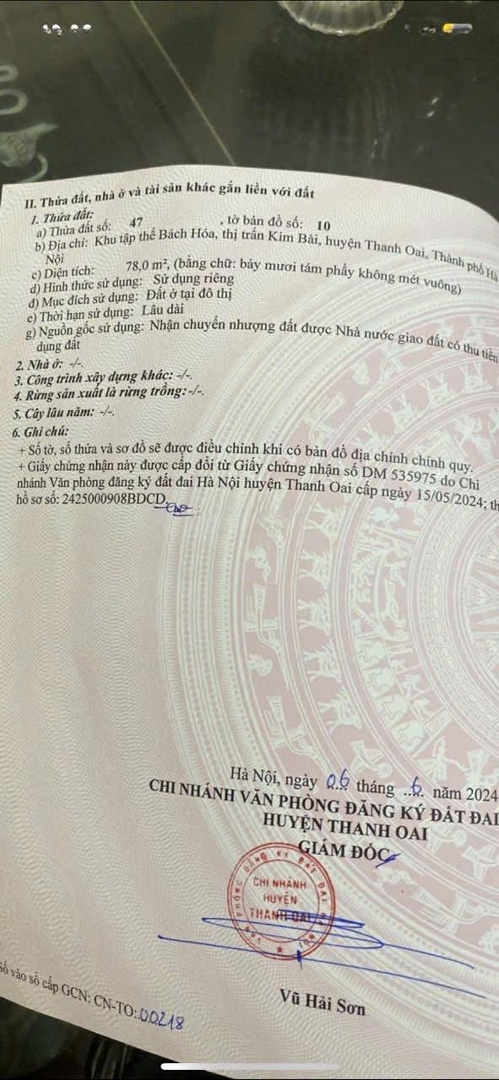 II. Thửa đất, nhà ở và tài sản khác gắn liền với đất
1. Thửa đất:
a) Thửa đất số: 47 , tờ bản đồ số: 10
b) Địa chỉ: Khu tập thể Bách Hóa, thị trấn Kim Bài, huyện Thanh Oai, Thành phố Hà
Nội
c) Diện tích: 78,0 m², (bằng chữ: bảy mươi tám phẩy không mét vuông)
d) Hình thức sử dụng: Sử dụng riêng
đ) Mục đích sử dụng: Đất ở tại đô thị
e) Thời hạn sử dụng: Lâu dài
g) Nguồn gốc sử dụng: Nhận chuyển nhượng đất được Nhà nước giao đất có thu tiền
dụng đất
2. Nhà ở: -/-.
3. Công trình xây dựng khác: -/-.
4. Rừng sản xuất là rừng trồng: -/-.
5. Cây lâu năm: -/-.
6. Ghi chú:
+ Số tờ, số thửa và sơ đồ sẽ được điều chỉnh khi có bản đồ địa chính chính quy.
+ Giấy chứng nhận này được cấp đổi từ Giấy chứng nhận số DM 535975 do Chi
nhánh Văn phòng đăng ký đất đai Hà Nội huyện Thanh Oai cấp ngày 15/05/2024; th
hồ sơ số: 2425000908BDCD.
Hà Nội, ngày 06 tháng 6 năm 2024
CHI NHÁNH VĂN PHÒNG ĐĂNG KÝ ĐẤT ĐAI
HUYỆN THANH OAI
GIÁM ĐỐC
VĂN PHÒNG ĐĂNG KÝ ĐẤT ĐAI NỘI
CHI NHÁNH
HUYỆN
THANH OAI
Vũ Hải Sơn
Số vào sổ cấp GCN: CN-TO: 00218